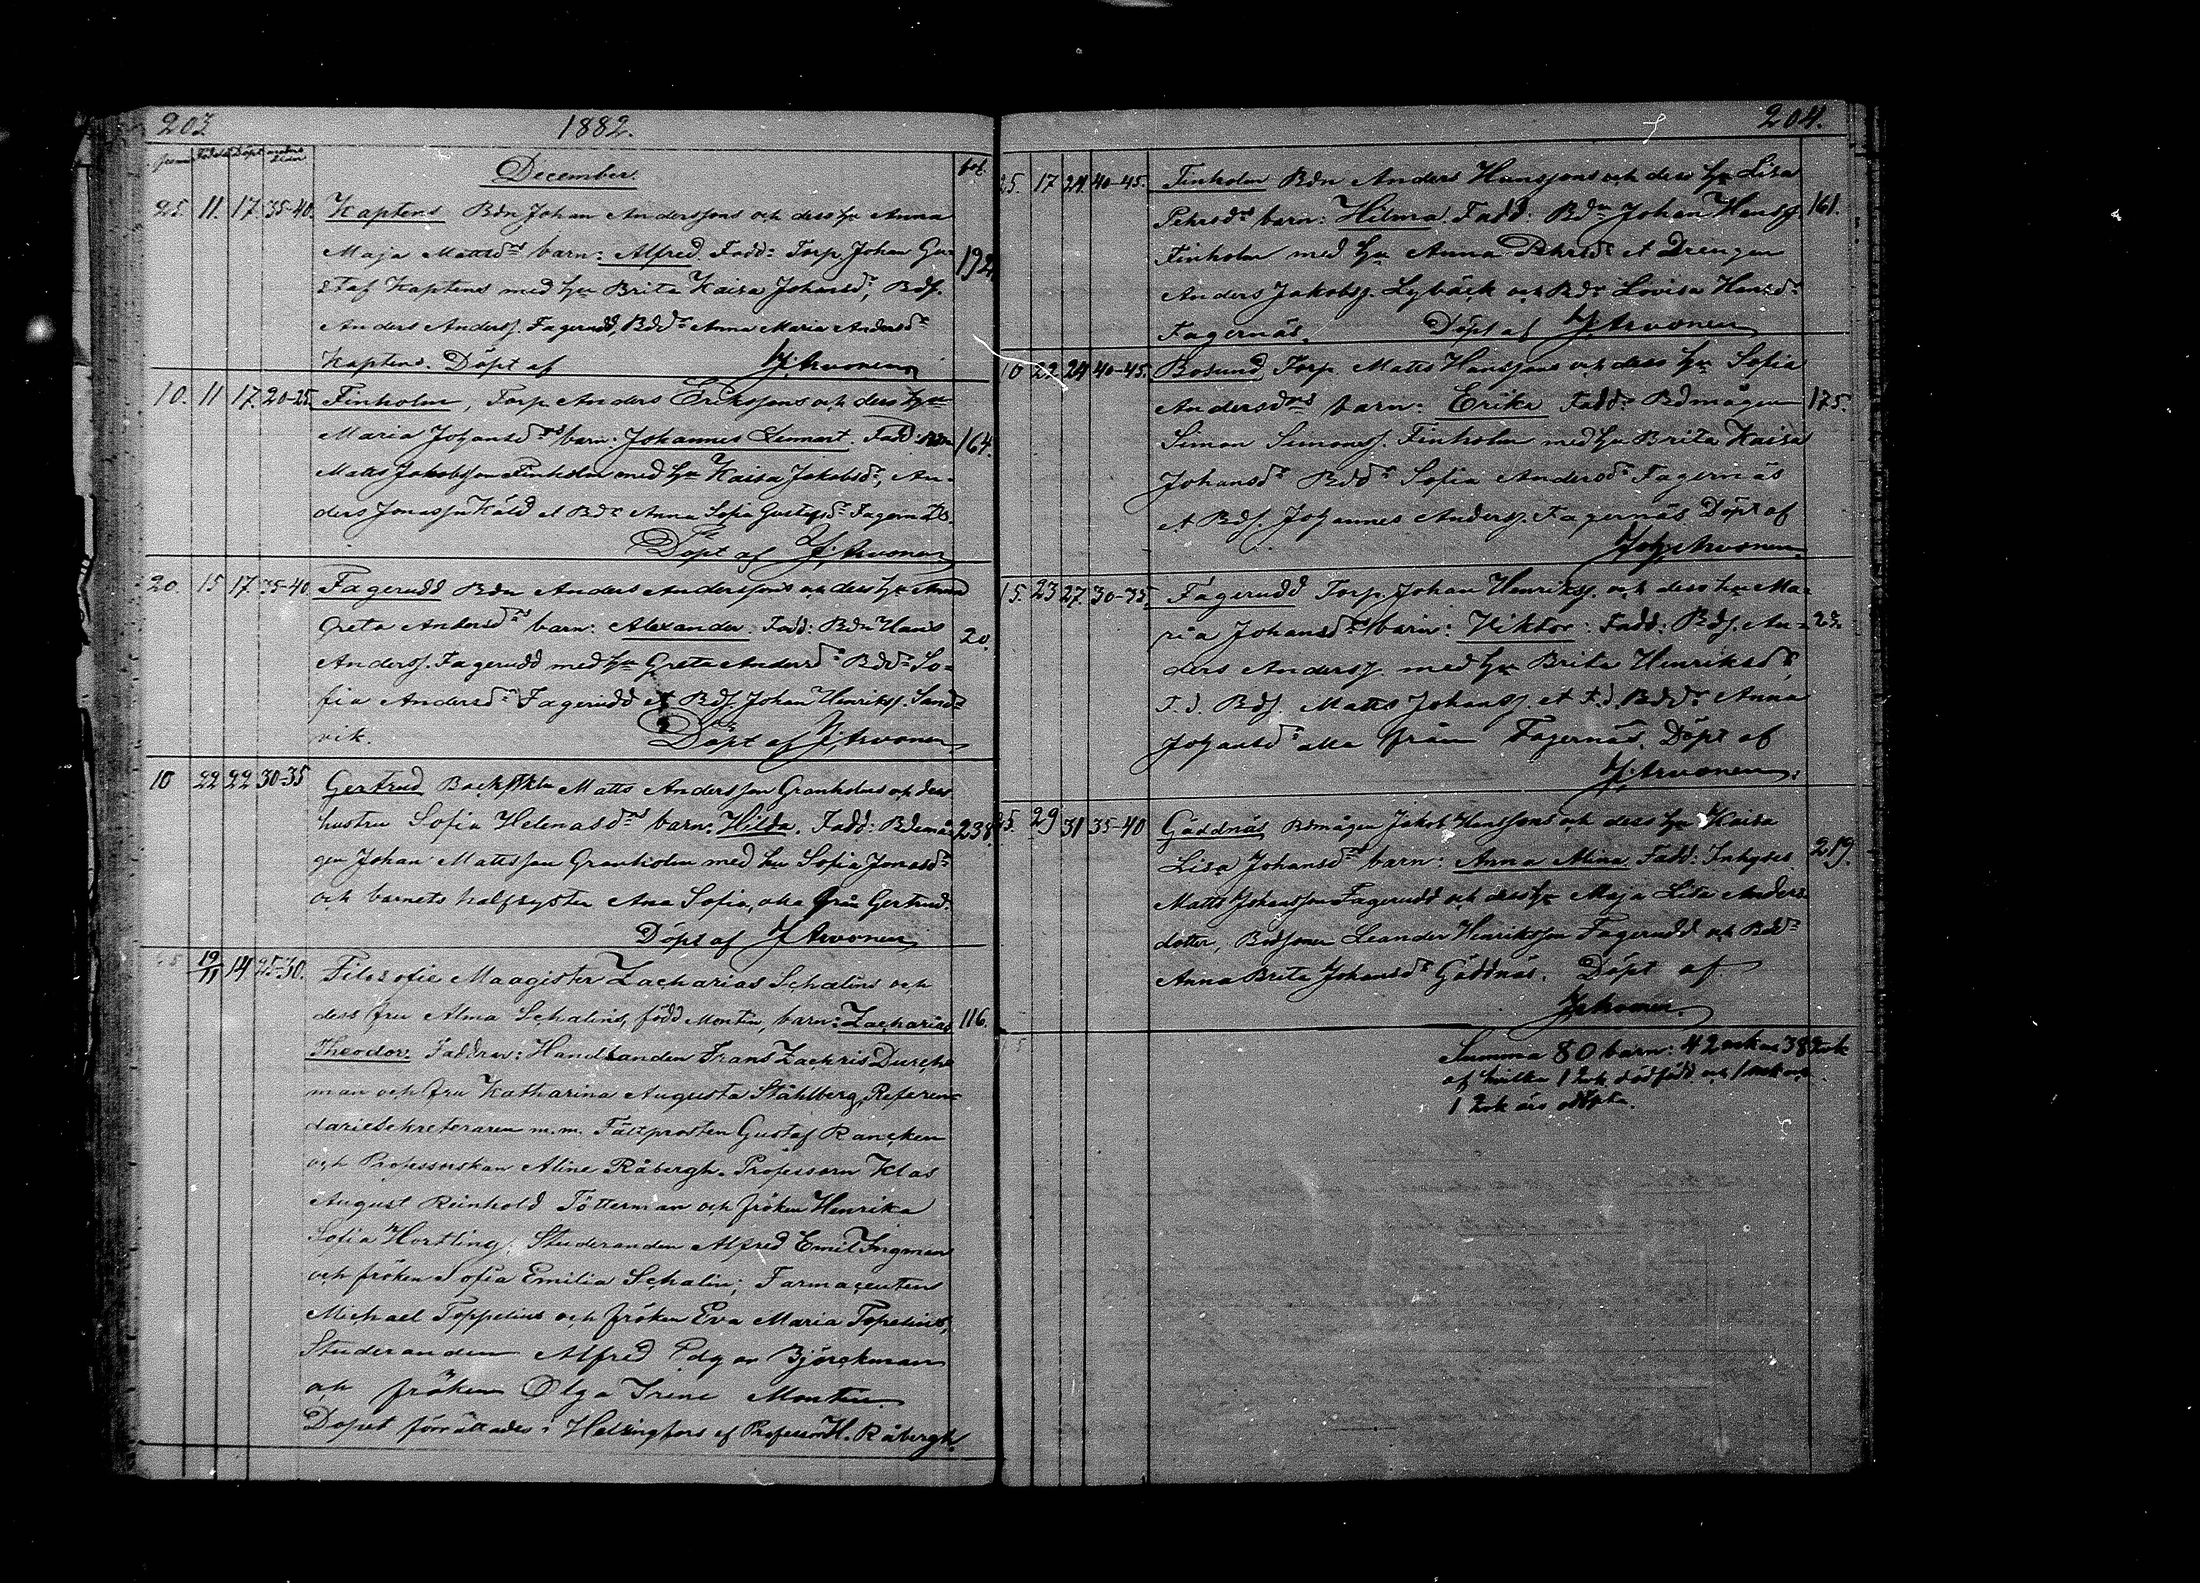 203
1882.
Födde Döpt
December.
fol.
25. 11. 17. 35-40. Kaptens Bdn Johan Anderssons och dess hu Anna
Maja Mattsdrs barn: Alfred. Fadd: Torp. Johan Gu- 192.
staf Kaptens med hu Brita Kaisa Johansdr, Bdf.
Anders Anderss. Fagerudd, Bddr Anna Maria Andersdr
Kaptens. Döpt af J. Arvonen
10. 11 17. 20-25. Finholm, Torp. Anders Erikssons och dess hu
Maria Johansdrs barn: Johannes Lennart. Fadd: Bdn 164.
Matts Jakobsson Finholm med hu Kaisa Jakobsdr, An-
ders Jonasson Käld et Bdr Anna Sofia Gustafsdr Fagernäs.
Döpt af J. Arvonen
20. 15 17. 35-40. Fagerudd Bdn Anders Anderssons och dess hu Anna
Greta Andersdrs barn: Alexander. Fadd: Bdn Hans 20.
Anderss. Fagerudd med hu Greta Andersdr Bddr So-
fia Andersdr Fagerudd et Bdf. Johan Henrikss. Sand-
vik. Döpt af J. Arvonen
10 22 22 30-35 Gertrud Matts Andersson Granholms och dess
hustru Sofia Helenasdrs barn: Hilda. Fadd: Bdmå- 238.
gen Johan Mattsson Granholm med hu Sofia Jonasdr
och barnets halfsyster Ana Sofia, alla från Gertrud.
Döpt af J Arvonen
19/11 14 25-30. Filosofie Maagister Zacharias Schalins och
dess fru Alma Schalins, född Montin, barn: Zacharias 116.
Theodor. Faddrar: Handlanden Frans Zachris Durch-
man och fru Katharina Augusta Ståhlberg, Referen-
dariesekreteraren m.m. Fältprosten Gustaf Rancken
och Professorskan Aline Råbergh. Professorn Klas
August Reinhold Tötterman och fröken Henrika
Sofia Hortling; Studeranden Alfred Emil Ingman
och fröken Sofia Emilia Schalin; Farmaceuten
Michael Toppelius och fröken Eva Maria Topelius,
Studeranden Alfred Edgar Björckman
och fröken Olga Irene Montin.
Dopet förrättades i Helsingfors af Professor H. Råbergh.
204.
25. 17 24 40-45. Finholm Bdn Anders Hanssons och dess hu Lisa
Pehrsdrs barn: Hilma. Fadd: Bdn Johan Hanss. 161.
Finholm med hu Anna Pehrsdr et Drengen
Anders Jakobss. Lybäck och Bdr Lovisa Hansdr
Fagernäs. Döpt af J. Arvonen
10 22 24 40-45. Bosund Torp Matts Hanssons och dess hu Sofia
Andersdrs barn: Erika Fadd: Bdmågen 175.
Simon Simonss. Finholm med hu Brita Kaisa
Johansdr Bddr Sofia Andersdr Fagernäs
et Bdf. Johannes Anderss. Fagernäs Döpt af
Joh. Arvonen.
15. 23 27. 30-35. Fagerudd Torp. Johan Henrikss. och dess hu Ma-
ria Johansdrs barn: Viktor: Fadd: Bdf. An- 23.
ders Anderss. med hu Brita Henriksdr,
T.d. Bdf. Matts Johanss. et t.d. Bddr Anna
Johansdr alla från Fagernäs. Döpt af
J. Arvonen.
25. 29 31 35-40 Gäddnäs Bdmågen Jakob Hanssons och dess hu Kaisa
Lisa Johansdrs barn: Anna Alina Fadd: Inhyses 219.
Matts Johansson Fagerudd och dess hu Maja Lisa Anders-
dotter, Bdsonen Leander Henriksson Fagerudd och Bddr
Anna Brita Johansdr Gäddnäs. Döpt af
J Arvonen.
Summa 80 barn: 42 mk och 38 qvk
af hvilka 1 qvk dödfödd och 1 mk och
1 qvk äro odöpta.